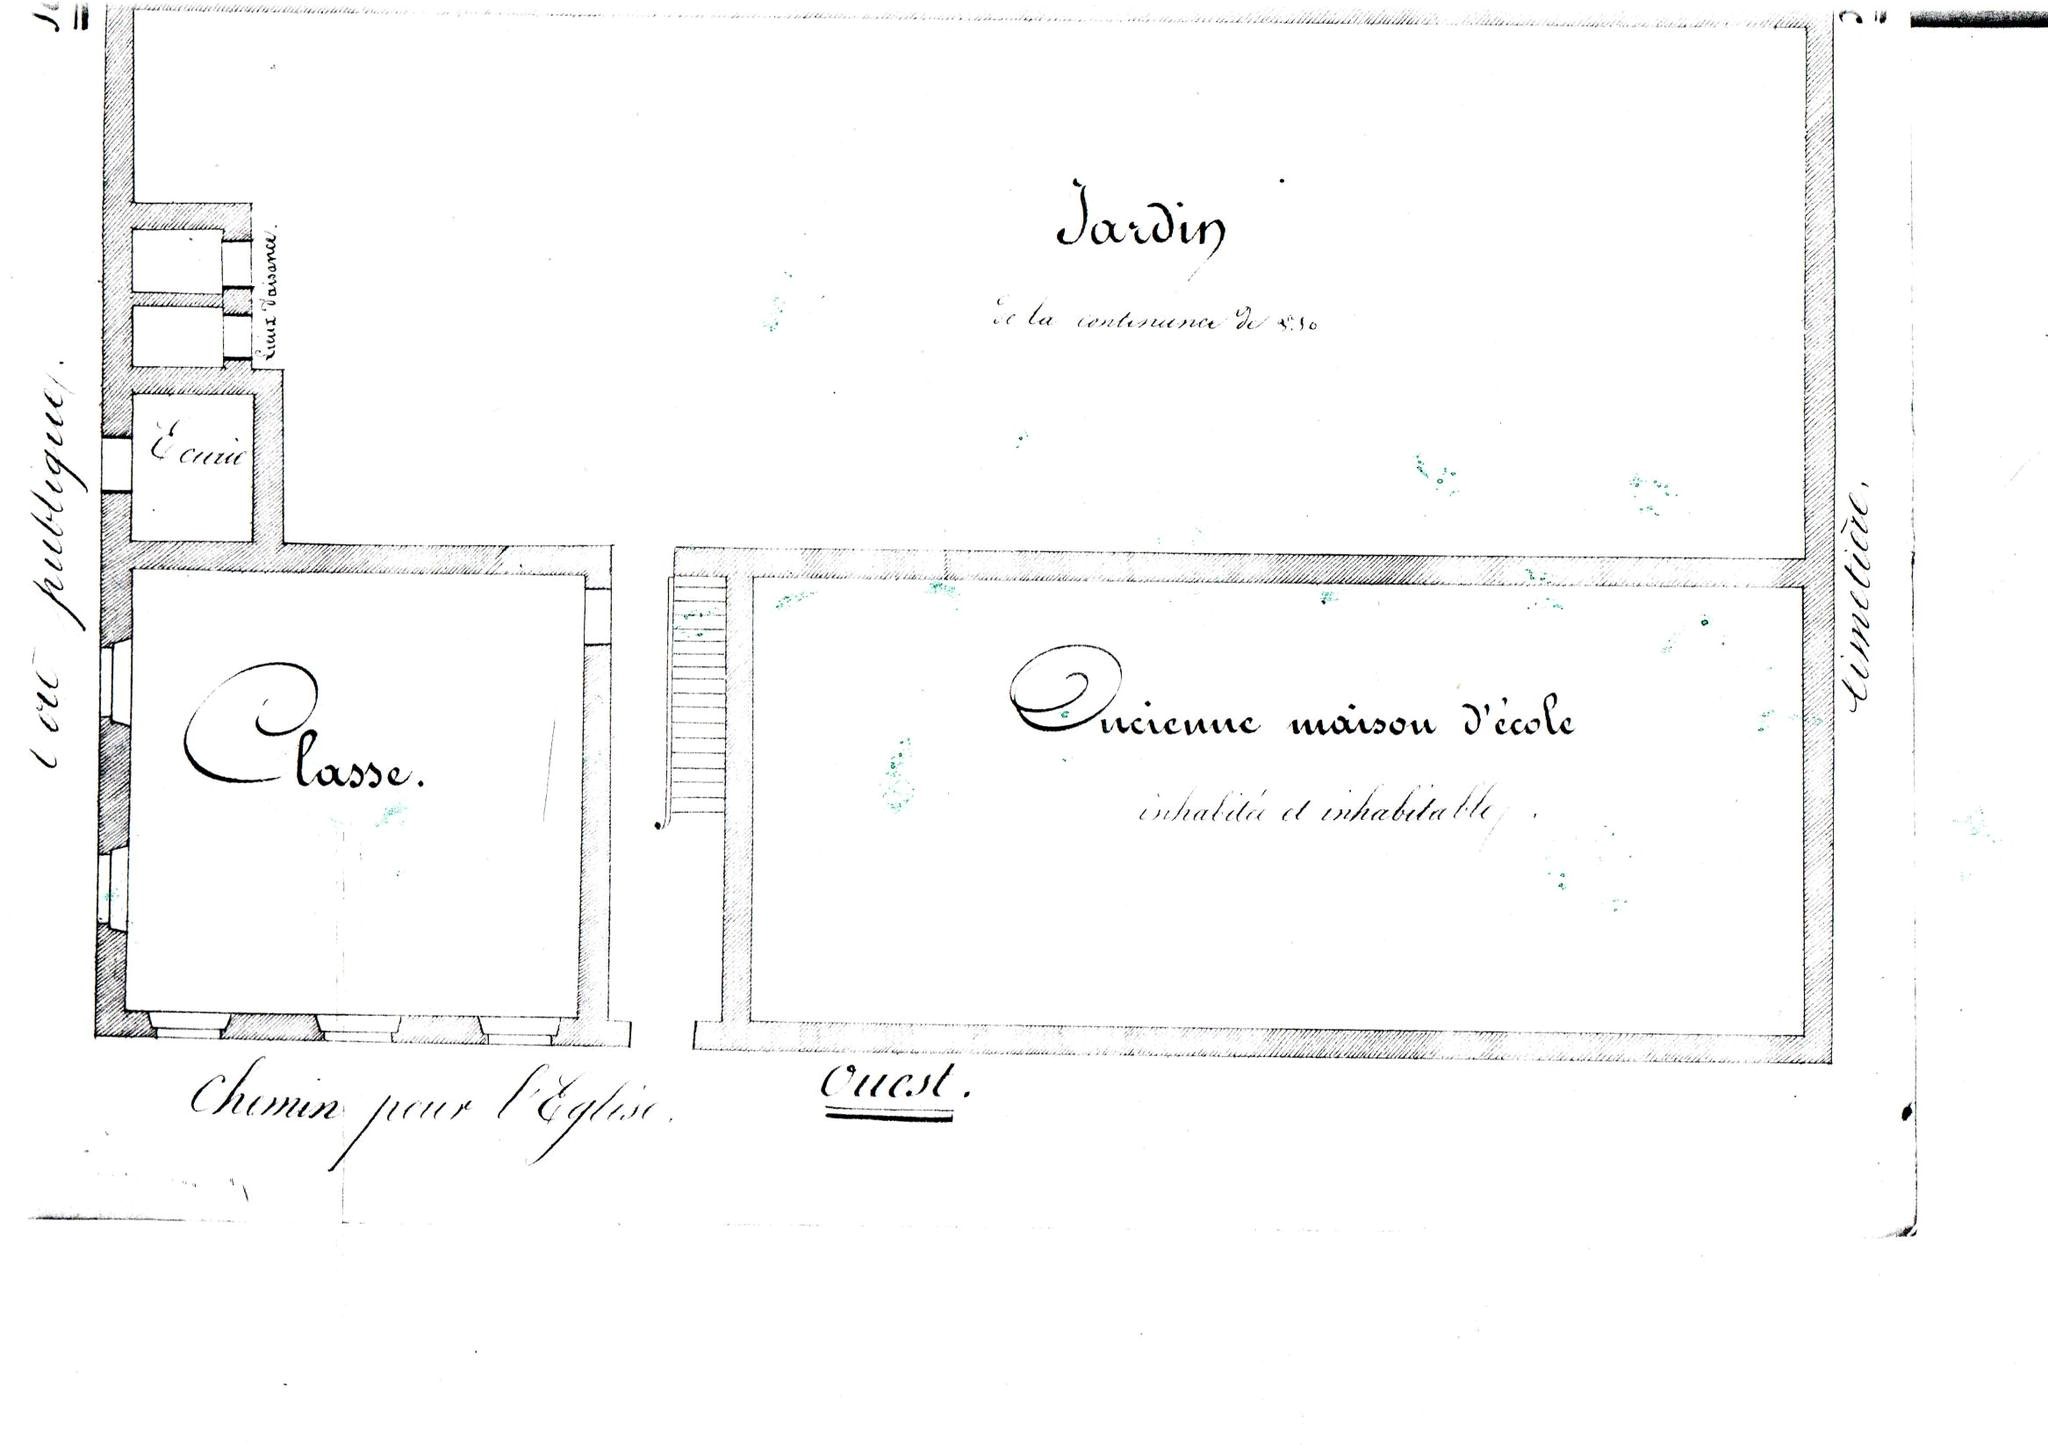 Jardin
de la contenance de
Lieux d'aisance.
Ecurie
Voie publique.
Cimetière.
Classe.
Ancienne maison d'école
inhabitée et inhabitable.
Ouest.
Chemin pour l'Eglise.